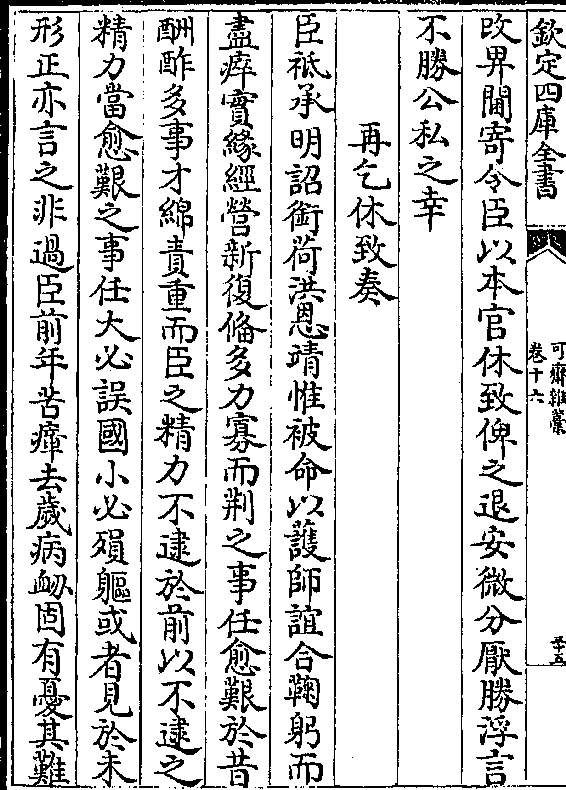 欽定四庫全書
可齋雜藁
卷十六
改畀閫寄令臣以本官休致俾之退安微分厭勝浮言
不勝公私之幸
再乞休致奏
臣祗承明詔銜荷洪恩靖惟被命以護師誼合鞠躬而
盡瘁實緣經營新復備多力寡而荆之事任愈艱於昔
酬酢多事才綿責重而臣之精力不逮於前以不逮之
精力當愈艱之事任大必誤國小必殞軀或者見於未
形正亦言之非過臣前年苦瘴去歲病衂固有憂其難